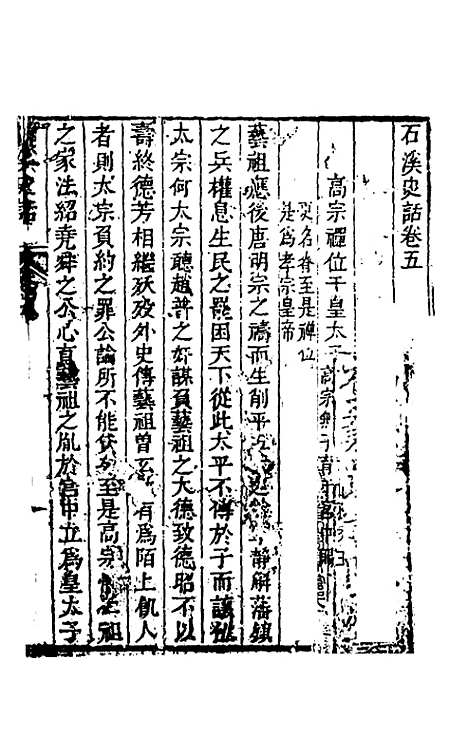 石溪史話卷五
高宗禪位于皇太子高宗無子育
更名眘至是禪位
是爲孝宗皇帝
藝祖應後唐明宗之禱而生削平靜解藩鎮
之兵權息生民之罷困天下從此太平不傳於子而讓
太宗何太宗聽趙普之奸謀負藝祖之大德致德昭不以
壽終德芳相繼殀歿外史傳藝祖曾有爲陌上飢人
者則太宗負約之罪公論所不能至是高宗祖
之家法紹堯舜之公心育藝祖之胤於宮中立爲皇太子